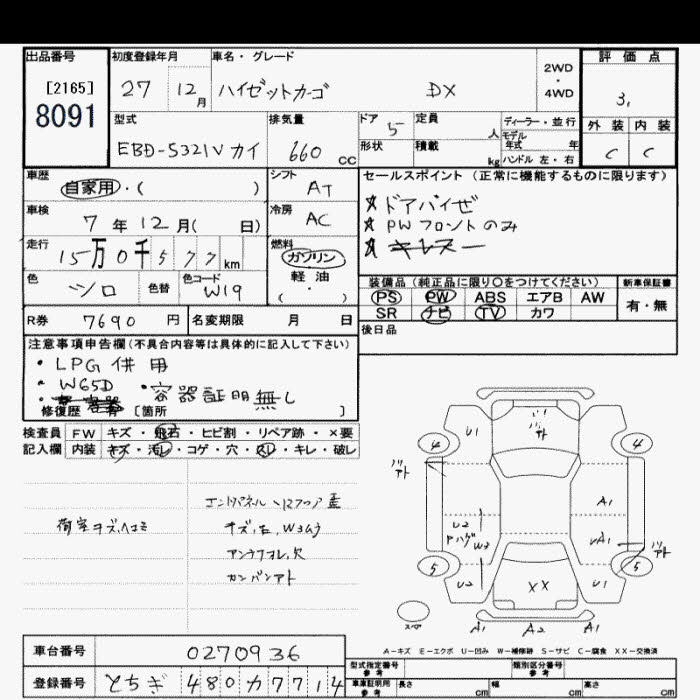 出品番号 初度登録年月 車名・グレード 2WD・4WD 評価点
[2165]
8091
27 12月 ハイゼットカーゴ DX 3,
型式 排気量 ドア 定員 ディーラー・並行
EBD-S321V カイ 660 cc 5 人 モデル年式 年
形状 積載 kg ハンドル 左・右
外装 内装
C C
車歴 シフト セールスポイント (正常に機能するものに限ります)
自家用・( ) AT
☆ドアバイザ
車検 冷房
7年12月( 日) AC
☆PWフロントのみ
走行 燃料
15万0千577km ガソリン
☆キーレス
軽油
・( )
色 色替 色コード
シロ W19
装備品 (純正品に限り〇をつけてください) 新車保証書
PS PW ABS エアB AW 有・無
SR ナビ TV カワ
R券 7690円 名変期限 月 日
後日品
注意事項申告欄(不具合内容等は具体的に記入して下さい)
・LPG併用
・W65D ・容器証明無し
修復歴 有 [箇所 ]
検査員 FW キズ・飛石・ヒビ割・リペア跡・×要
記入欄 内装 キズ・汚レ・コゲ・穴・スレ・キレ・破レ
荷室キズ,ヘコミ
キズ,右,W3ムラ
アンテナオレ,欠
カンバンアト
U1 アト
4 4
アト
A1
U2 W3 ハゲ A1 アト
5 U2 XX U1 5
スペア A1 A2 A1
A-キズ E-エクボ U-凹み W-補修跡 S-サビ C-腐食 XX-交換済
車台番号 0270936
型式指定番号 参考 類別区分番号 参考
登録番号 とちぎ 480 カ 7714
車庫証明用 参考 長さ cm 幅 cm 高さ cm